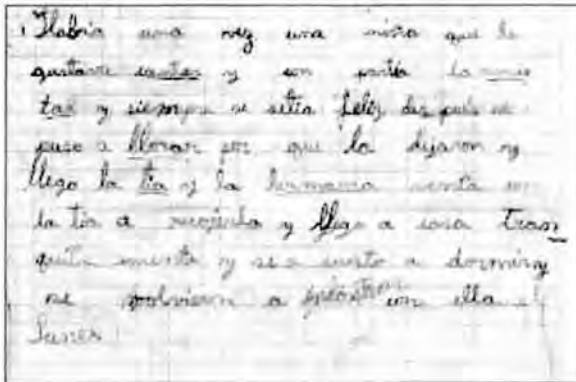 Habria una vez una niña que le
gustava cantar y con partia la amis
tad y siempre se setia feliz des pués se
puso a llorar por que la dijaron y
llego la tia y la hermana venta con
la tia a recojerla y llego a casa Tran
quila menta y se a custo a dormir y
se volvieron a con ella el
lunes